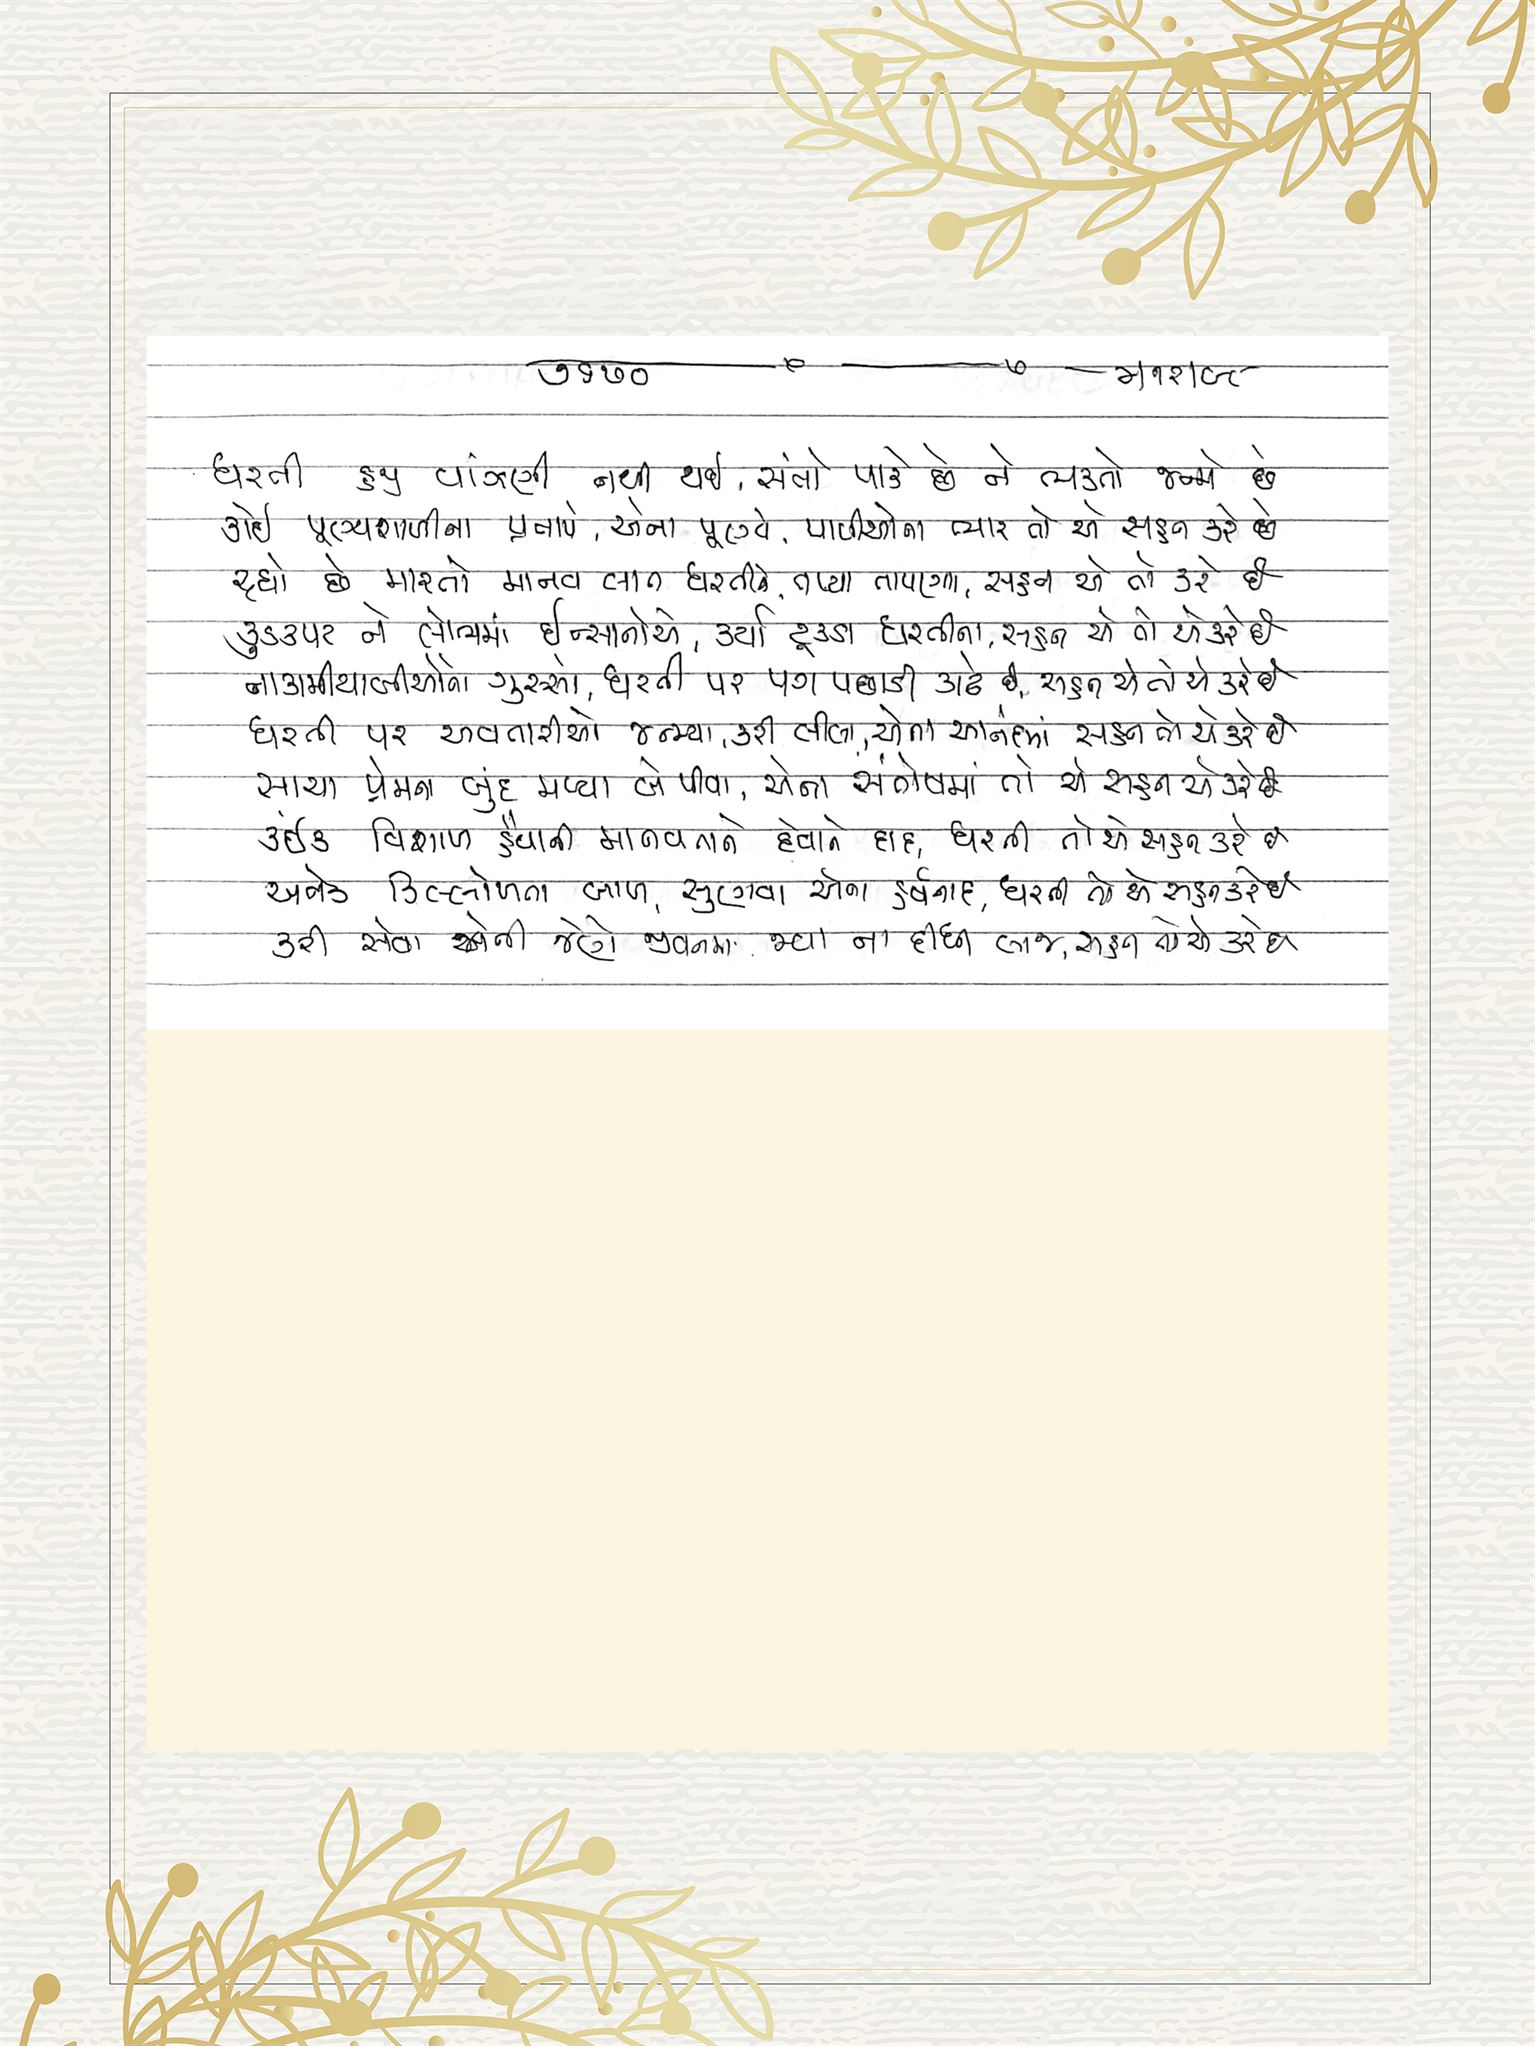 ૭૬૭૦
ધરતી હજુ વાંઝણી નથી થઈ, સંતો પાકે છે ને ભક્તો જન્મે છે
કોઈ પૂણ્યશાળીના પ્રતાપે, એના પૂણ્યે, પાપીઓના ભાર તો એ સહન કરે છે
દગો છે મારતો માનવ લાત ધરતીને, તપ્યા તાપણા, સહન એ તો કરે છે
કુડકપટ ને લોભમાં ઈન્સાનોએ, કર્યા ટૂકડા ધરતીના, સહન એ તો એ કરે છે
નાકામીયાબીઓનો ગુસ્સો, ધરતી પર પગ પછાડી કાઢે છે, સહન એ તો એ કરે છે
ધરતી પર અવતારીઓ જન્મ્યા, કરી લીલા, એના આનંદમાં સહન તો એ કરે છે
સાચા પ્રેમના બુંદ મળ્યા જે પીવા, એના સંતોષમાં તો એ સહન એ કરે છે
કંઈક વિશાળ હૈયાની માનવતાને દેવાને દાદ, ધરતી તો એ સહન કરે છે
અનેક કિલ્લોળતા બાળ, સુણવા એના હર્ષનાદ, ધરતી તો એ સહન કરે છે
કરી સેવા એની જેણે જીવનમાં, ના દીધી લાજ, સહન તો એ કરે છે